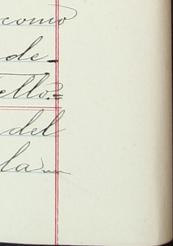 como
de-
ello=
del
la